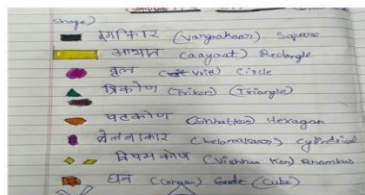 shape)
वर्गाकार (vargaakaar) Square
आयात (aayaat) Rectangle
वृत (vrit) Circle
त्रिकोण (Trikon) (Triangle)
षटकोण (Shhatkon) Hexagan
बेलनाकार (belanakaar) Cylindrical
विषम कोण (Visham Kon) Rhombus
घन (Ghan) (Cube)